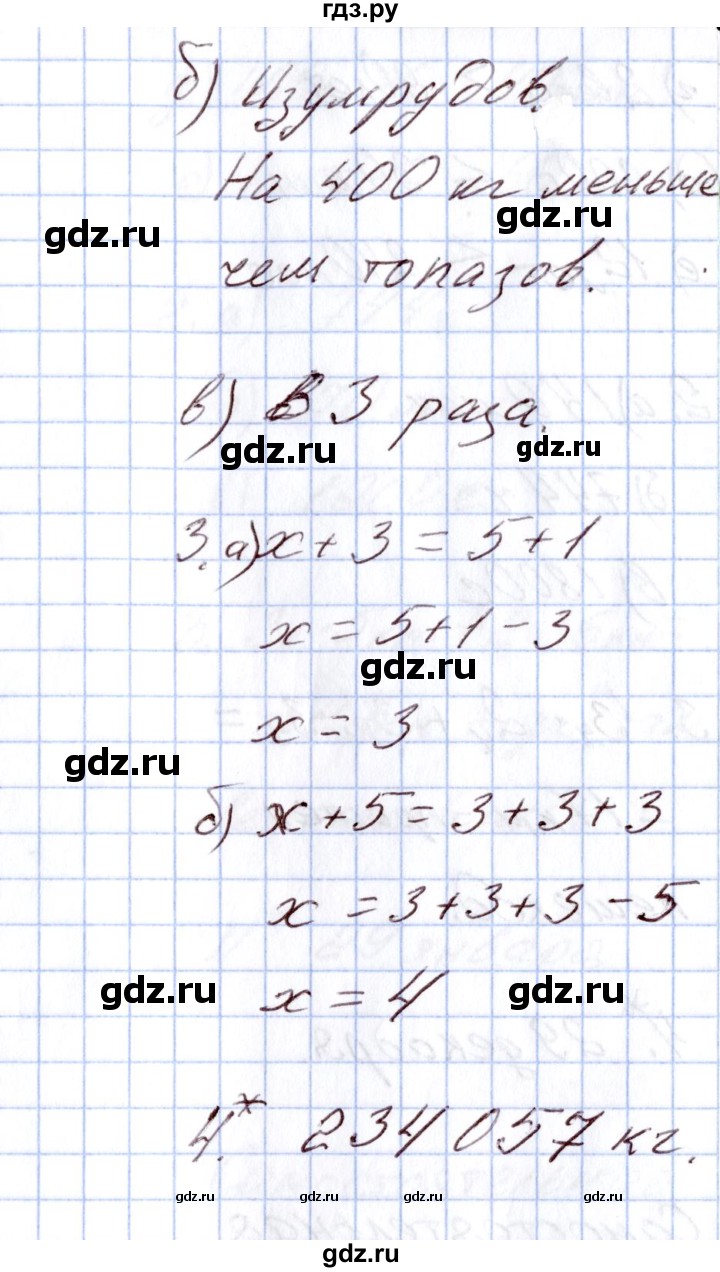 гдз.ру
б) Изумрудов.
На 400 кг меньше
gdz.ru
gdz.ru
чем топазов.
в) В 3 раза.
gdz.ru
gdz.ru
3. а) x + 3 = 5 + 1
x = 5 + 1 - 3
gdz.ru
x = 3
gdz.ru
б) x + 5 = 3 + 3 + 3
x = 3 + 3 + 3 - 5
gdz.ru
gdz.ru
x = 4
4.* 234 057 кг.
gdz.ru
gdz.ru
gdz.ru
gdz.ru
gdz.ru